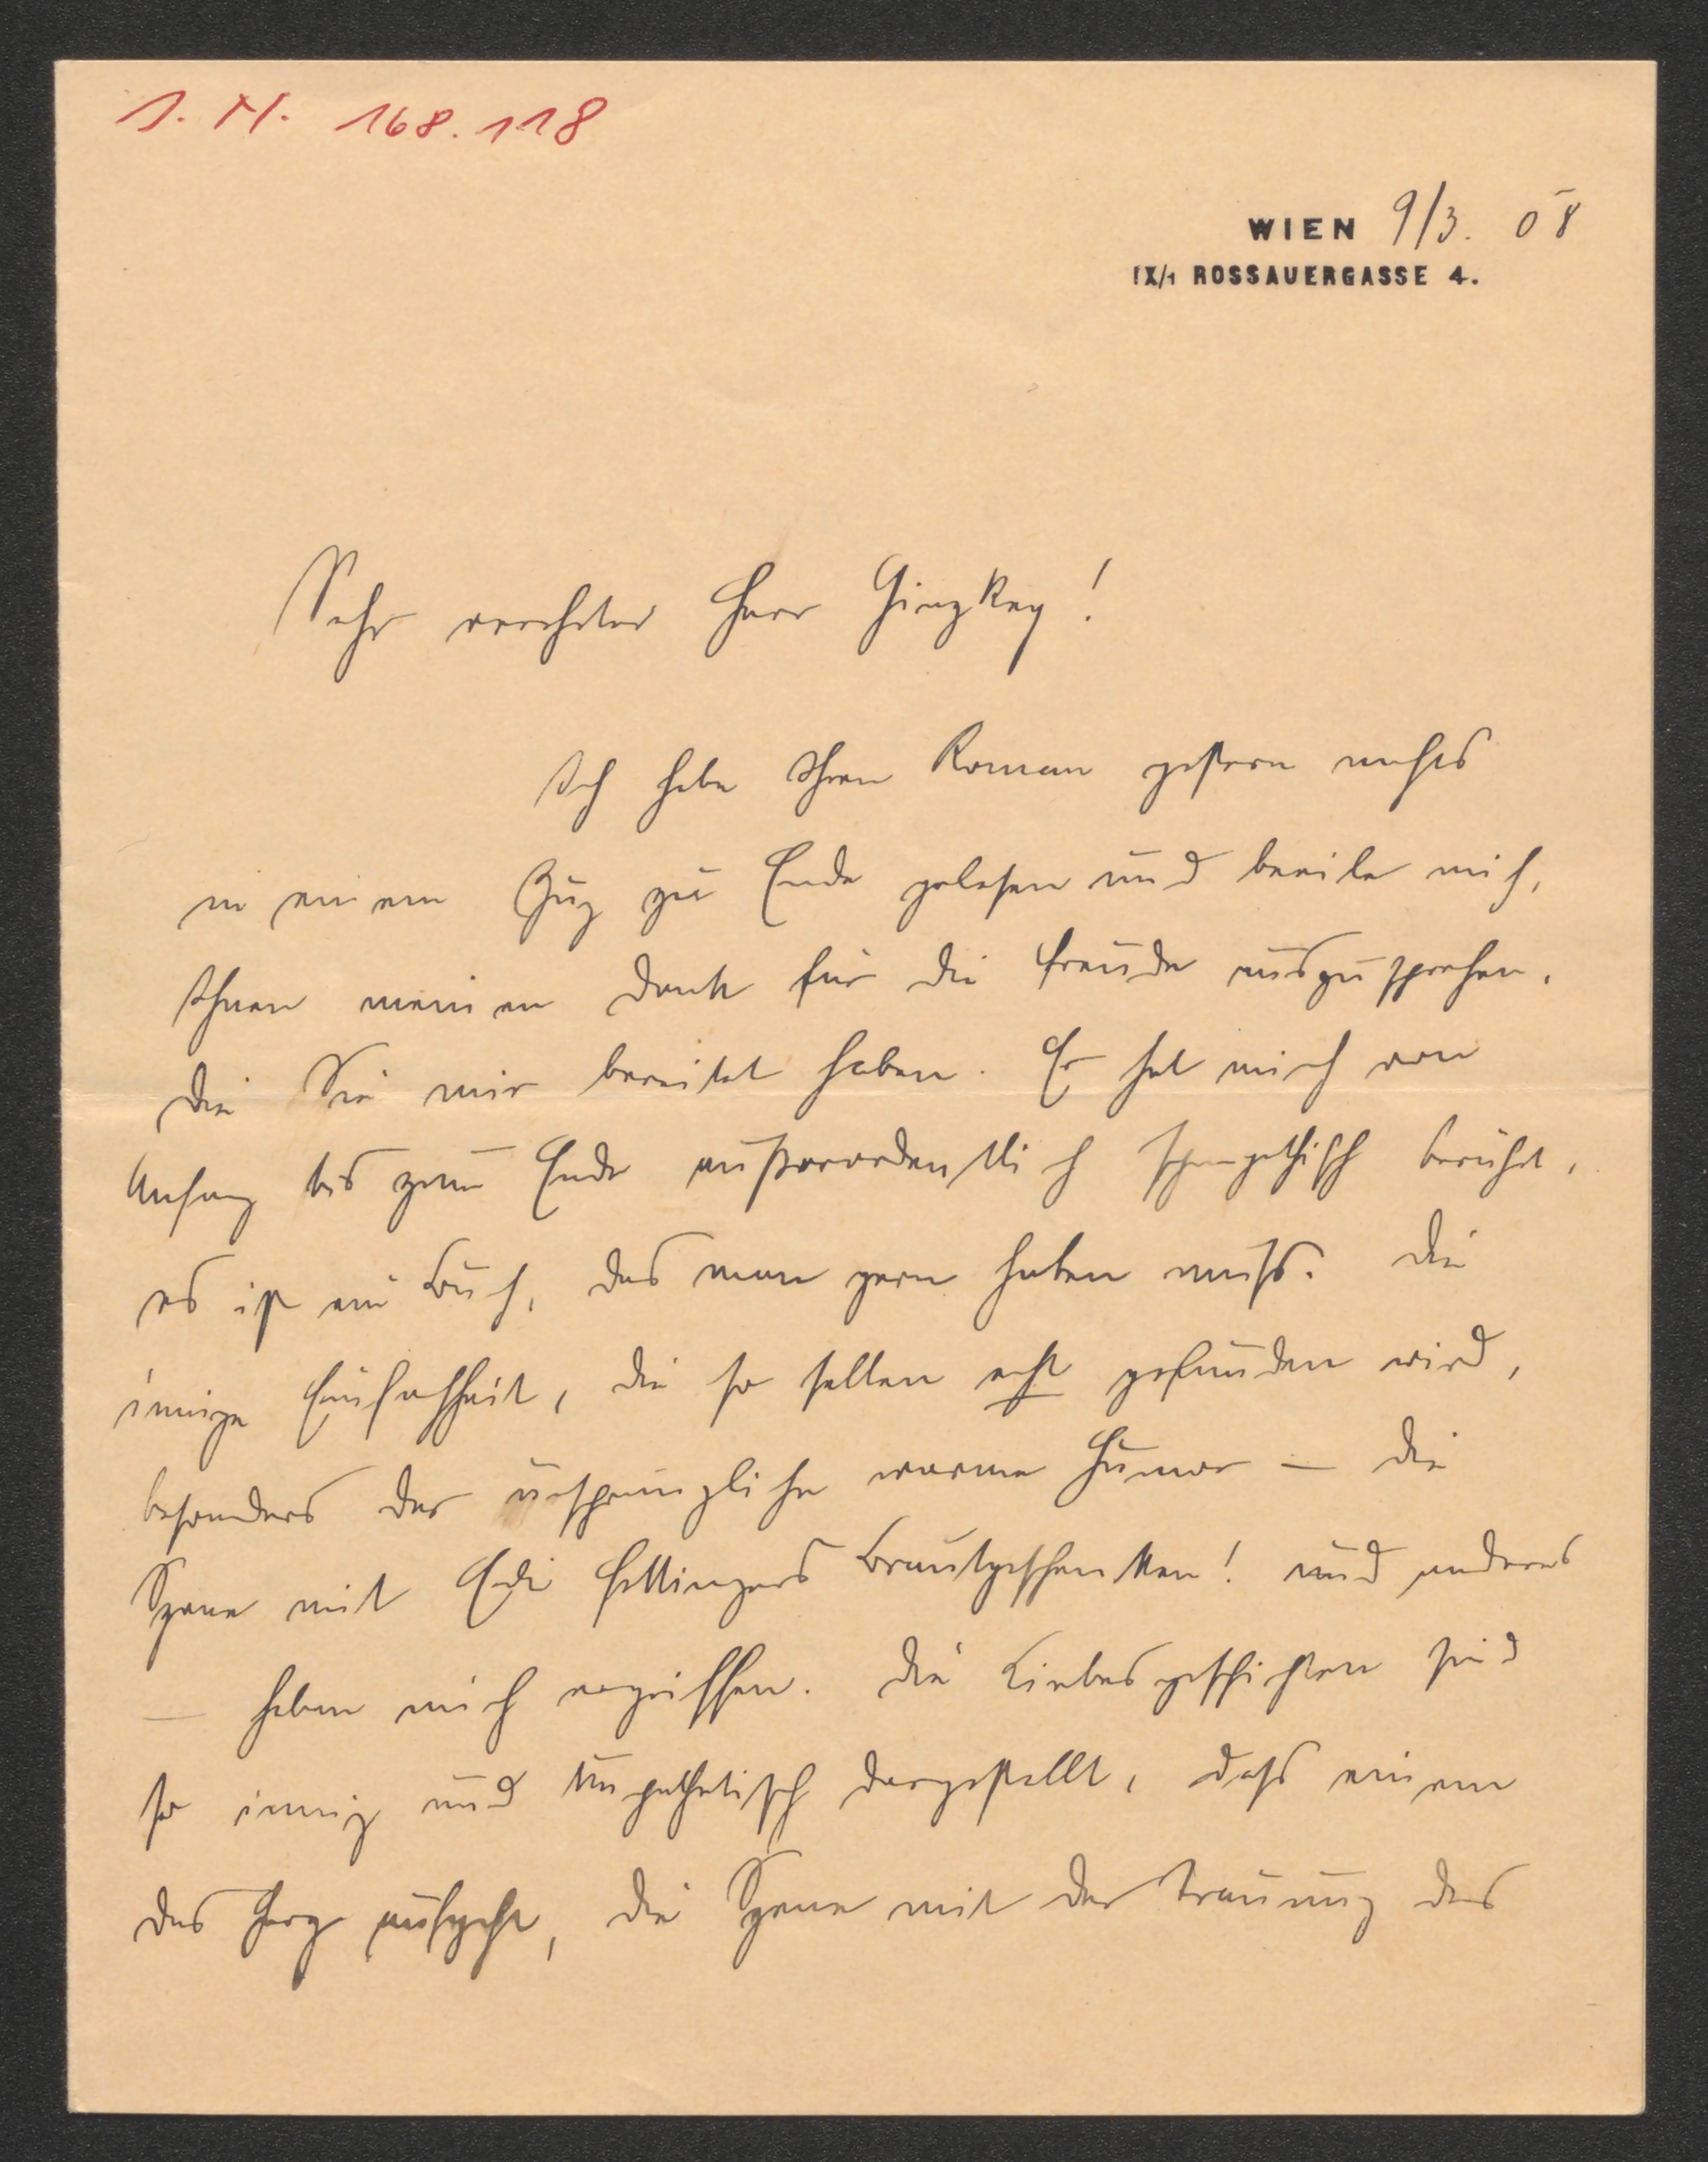 J. N. 168.118
WIEN 9/3. 08
IX/1 ROSSAUERGASSE 4.
Sehr verehrter Herr Ginzkey!
Ich habe Ihren Roman gestern nachts
in einem Zug zu Ende gelesen und beeile mich,
Ihnen meinen Dank für die Freude auszusprechen,
die Sie mir bereitet haben. Er hat mich von
Anfang bis zum Ende außerordentlich sympathisch berührt,
es ist ein Buch, das man gern haben muß. Die
innige Einfachheit, die so selten echt gefunden wird,
besonders der ursprüngliche warme Humor – die
Szene mit Edi Hettingers Brautgeschenken! und anderes
– haben mich ergriffen. Die Liebesgeschichten sind
so innig und unpathetisch dargestellt, daß einem
das Herz aufgeht, die Szene mit der Trauung des